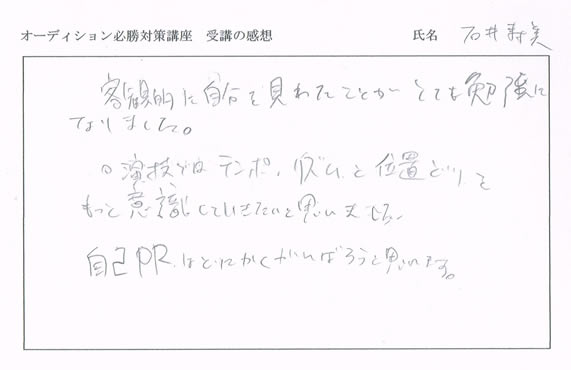 オーディション必勝対策講座 受講の感想 氏名 石井寿美
客観的に自分を見れたことがとても勉強に
なりました。
○演技ではテンポ、リズムと位置どりを
もっと意識していきたいと思いました。
自己PRはとにかくがんばろうと思います。